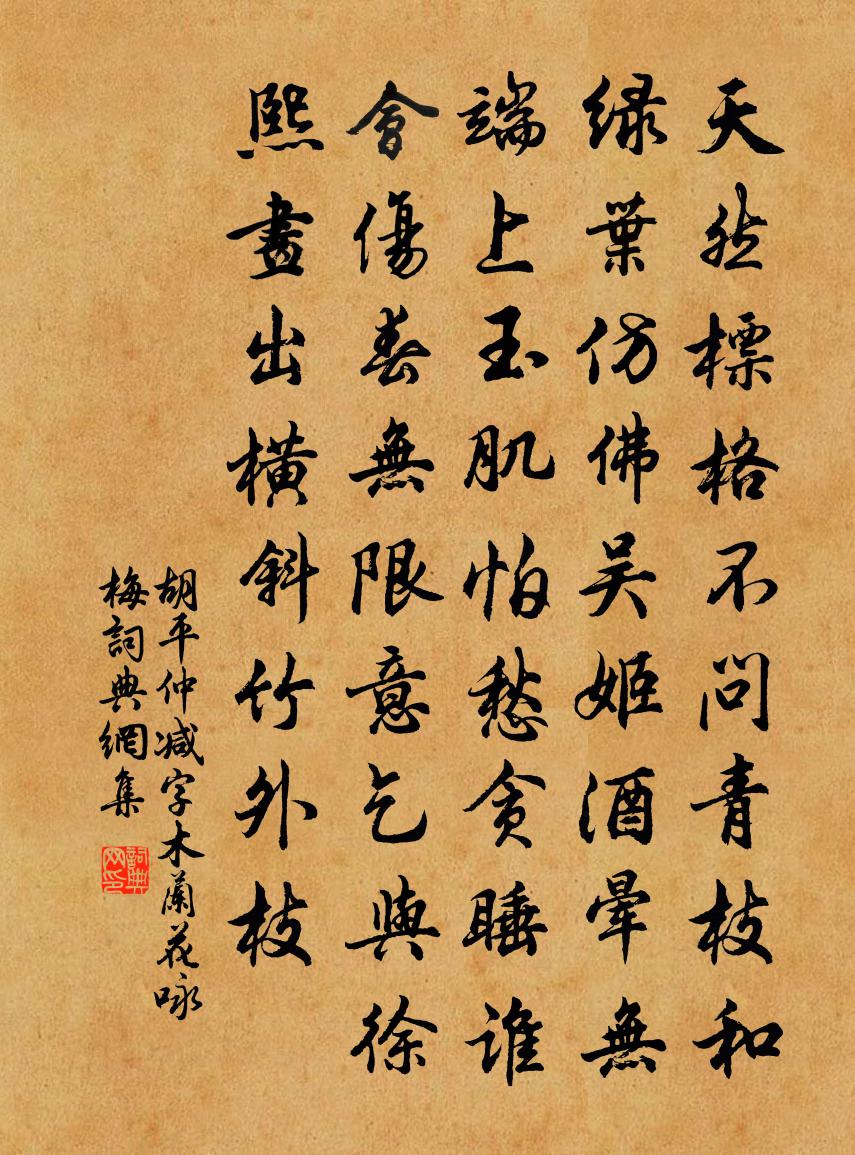 天然標格不問青枝和
绿葉仿佛吴姬酒暈無
端上玉肌怕愁贪睡誰
會傷春無限意乞與徐
熙畫出橫斜竹外枝
胡平仲减字木蘭花咏
梅詞典網集
詞典网印